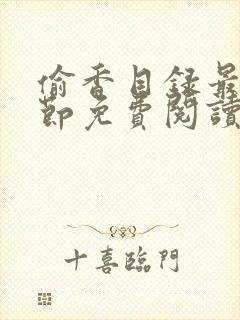 偷香目録最
節免費閱讀
十喜臨門